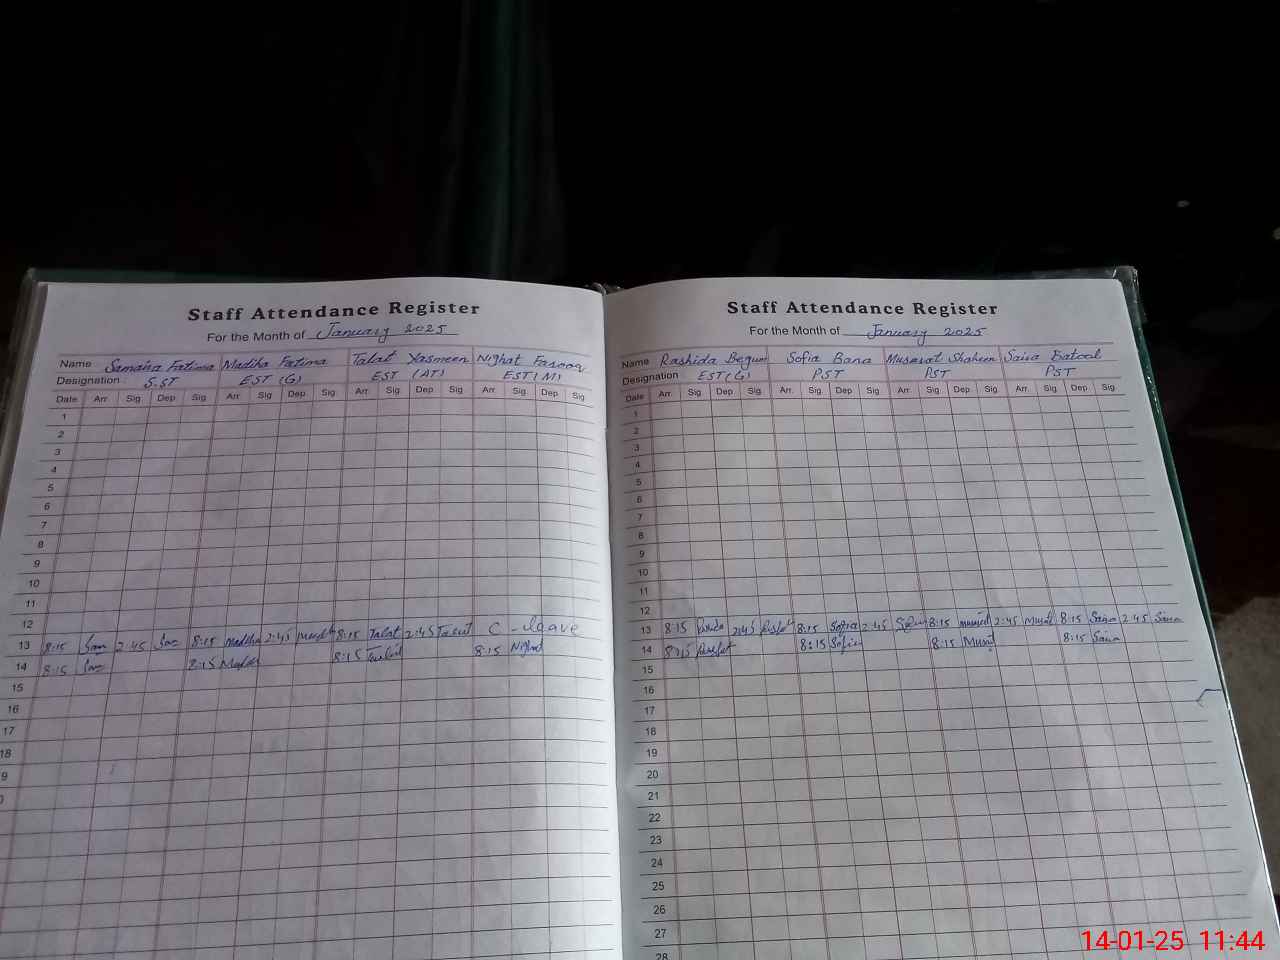 Staff Attendance Register
For the Month of January 2025
Name Samaha Fatima Madiha Fatima Talat Yasmeen Nighat Farooq
Designation : S.ST EST (G) EST (AT) EST(M)
Date Arr. Sig Dep Sig Arr Sig Dep Sig Arr Sig Dep Sig Arr Sig Dep Sig
1
2
3
4
5
6
7
8
9
10
11
12
13 8:15 Sam 2:45 Sam 8:15 Madiha 2:45 8:15 Talat 2:45 Talat C-leave
14 8:15 Sam 8:15 8:15 Talat 8:15 Nighat
15
16
17
18
9
0
Staff Attendance Register
For the Month of January 2025
Name Rashida Begum Sofia Bano Musarat Shaheen Saira Batool
Designation EST(G) PST PST PST
Date Arr. Sig Dep Sig Arr Sig Dep Sig Arr Sig Dep Sig Arr Sig Dep Sig
1
2
3
4
5
6
7
8
9
10
11
12
13 8:15 2:45 8:15 Sofia 2:45 Sofia 8:15 2:45 8:15 Saira 2:45 Saira
14 8:15 8:15 Sofia 8:15 8:15 Saira
15
16
17
18
19
20
21
22
23
24
25
26
27
28
14-01-25 11:44